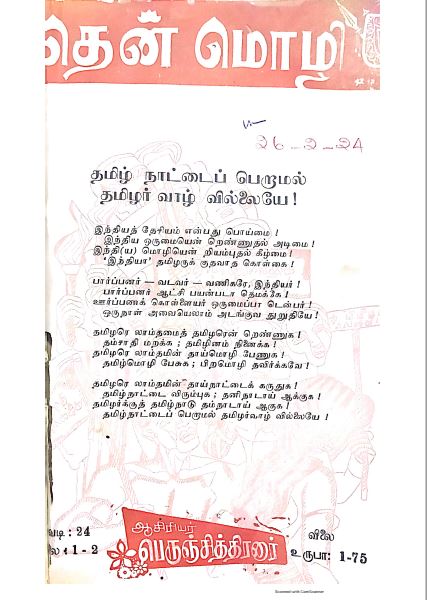 தென் மொழி
26-2-24
தமிழ் நாட்டைப் பெறாமல்
தமிழர் வாழ் வில்லையே!
இந்தியத் தேரியம் என்பது பொய்மை!
இந்திய ஒருமையென் றெண்ணுதல் அடிமை!
இந்தி(ய) மொழியென் றியம்புதல் கீழ்மை!
'இந்தியா' தமிழருக் குதவாத கொள்கை!
பார்ப்பனர் — வடவர் — வணிகரே, இந்தியர்!
பார்ப்பனர் ஆட்சி பயன்படா தெமக்கே!
ஊர்ப்பணக் கொள்ளையர் ஒருமைப்பா டென்பர்!
ஒருநாள் அவையெலாம் அடங்குவ துறுதியே!
தமிழரெ லாம்தமைத் தமிழரென் றெண்ணுக!
தம்சாதி மறக்க; தமிழினம் நினைக்க!
தமிழரெ லாம்தமின் தாய்மொழி பேணுக!
தமிழ்மொழி பேசுக; பிறமொழி தவிர்க்கவே!
தமிழரெ லாம்தமின் தாய்நாட்டைக் கருதுக!
தமிழ்நாட்டை விரும்புக; தனிநாடாய் ஆக்குக!
தமிழர்க்குத் தமிழ்நாடு தம்நாடாய் ஆகுக!
தமிழ்நாட்டைப் பெறாமல் தமிழர்வாழ் வில்லையே!
ஆசிரியர்
பெருஞ்சித்திரனார்
வடி: 24
1-2
விலை
உருபா: 1-75
Scanned with CamScanner